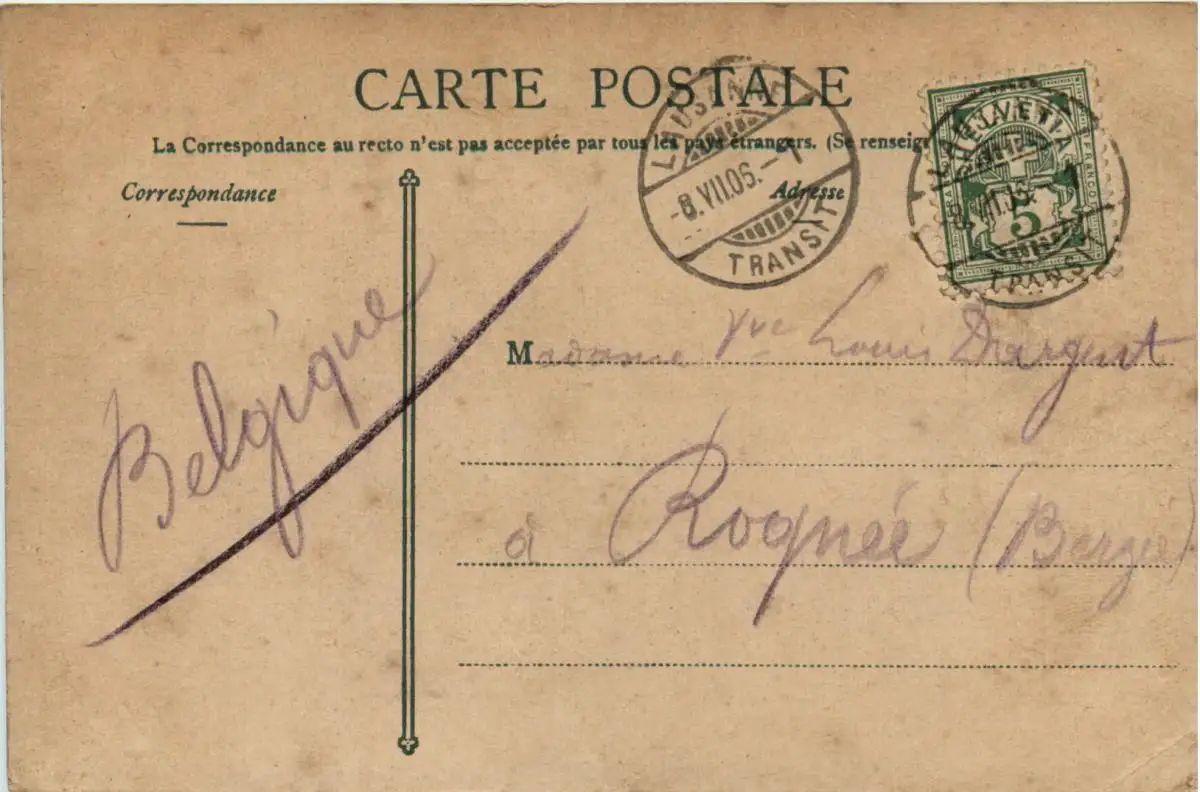 CARTE POSTALE
La Correspondance au recto n'est pas acceptée par tous les pays étrangers. (Se renseig
Correspondance
Adresse
LAUSANNE
-8.VII.06.-1
TRANSIT
HELVETIA
FRANCO
5
-8.VII.06.-1
TRANSIT
Belgique
Madame Vve Louis Dargent
à Rognée (Berzée)